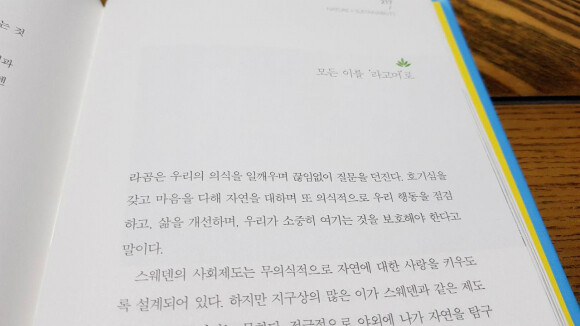 는 것
모든 이를 '라고머'로
라곰은 우리의 의식을 일깨우며 끊임없이 질문을 던진다. 호기심을
갖고 마음을 다해 자연을 대하며 또 의식적으로 우리 행동을 점검
하고, 삶을 개선하며, 우리가 소중히 여기는 것을 보호해야 한다고
말이다.
스웨덴의 사회제도는 무의식적으로 자연에 대한 사랑을 키우도
록 설계되어 있다. 하지만 지구상의 많은 이가 스웨덴과 같은 제도
적극적으로 야외에 나가 자연을 탐구